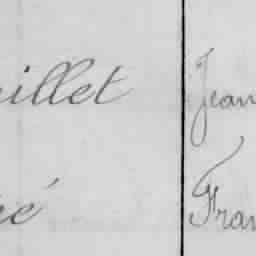 illet Jean
é Fran